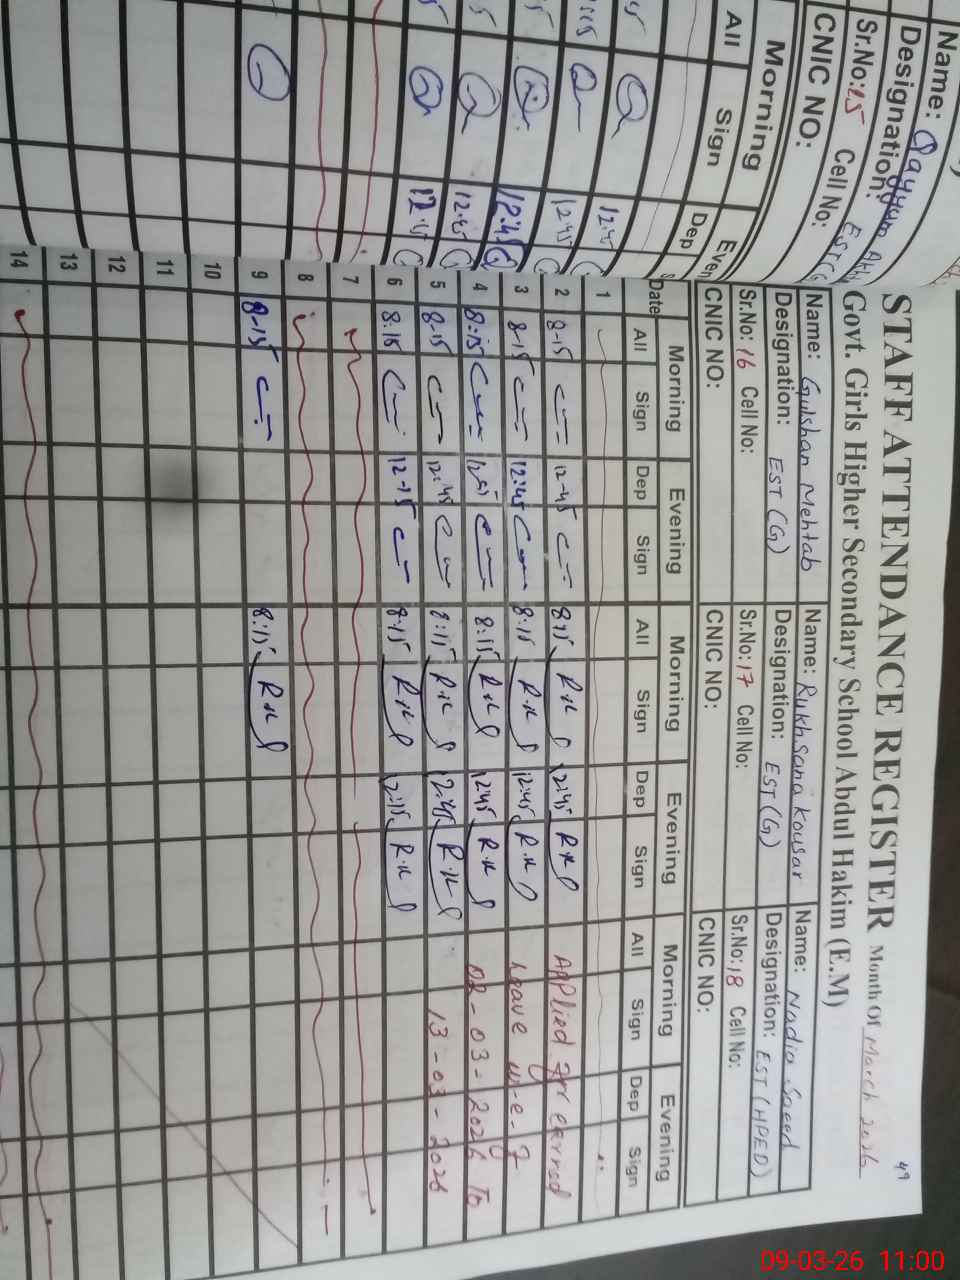 STAFF ATTENDANCE REGISTER Month Of March 2026
49
Govt. Girls Higher Secondary School Abdul Hakim (E.M)
Name: Gulshan Mehtab Name: Rukhsana Kousar Name: Nadia Saeed
Designation: EST (G) Designation: EST (G) Designation: EST (HPED)
Sr.No: 16 Cell No: Sr.No: 17 Cell No: Sr.No: 18 Cell No:
CNIC NO: CNIC NO: CNIC NO:
Date Morning Evening Morning Evening Morning Evening
All Sign Dep Sign All Sign Dep Sign All Sign Dep Sign
1
2 8-15 12-45 8:15 R.K 12:45 R.K Applied for earned
3 8-15 12:45 8:15 R.K 12:45 R.K Leave w-e-f
4 8:15 8:15 R.K 12:45 R.K 02-03-2026 To
5 8-15 12:45 8:15 R.K 12:45 R.K 13-03-2026
6 8:15 12-15 8:15 R.K 12:15 R.K
7
8
9 8-15 8:15 R.K
10
11
12
13
14
Name: Qayyum
Designation: EST (G
Sr.No: 15 Cell No:
CNIC NO:
Morning Even
All Sign Dep
12:45
12:45
12:45
12:45
12:15
09-03-26 11:00